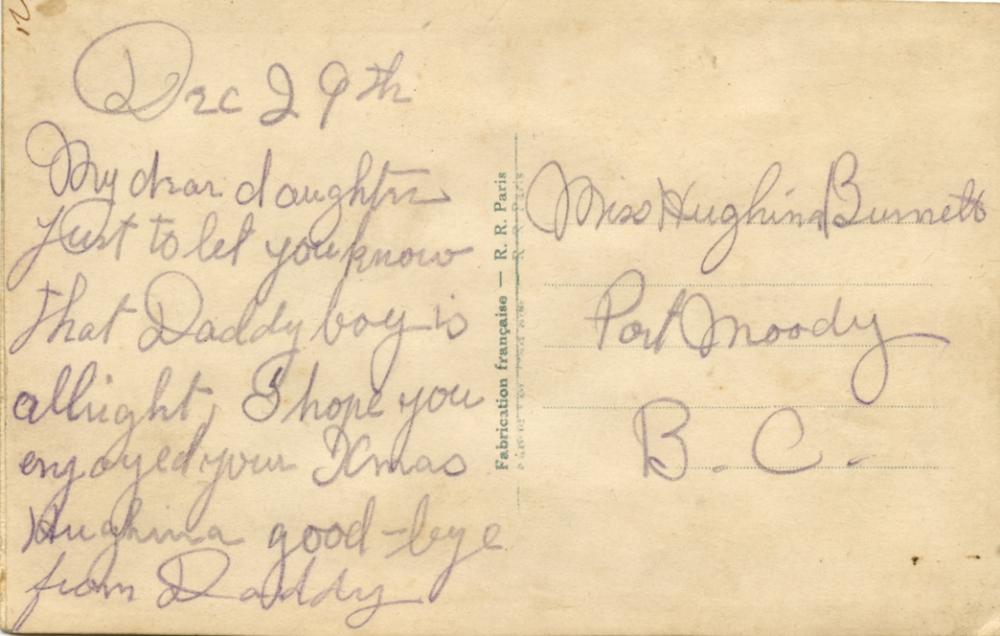 Dec 29th
My dear daughter
Just to let you know
that Daddy boy is
allright, I hope you
engoyed your Xmas
Hughina good-bye
from Daddy
Fabrication française — R. R. Paris
Miss Hughina Burnett
Port Moody
B. C.